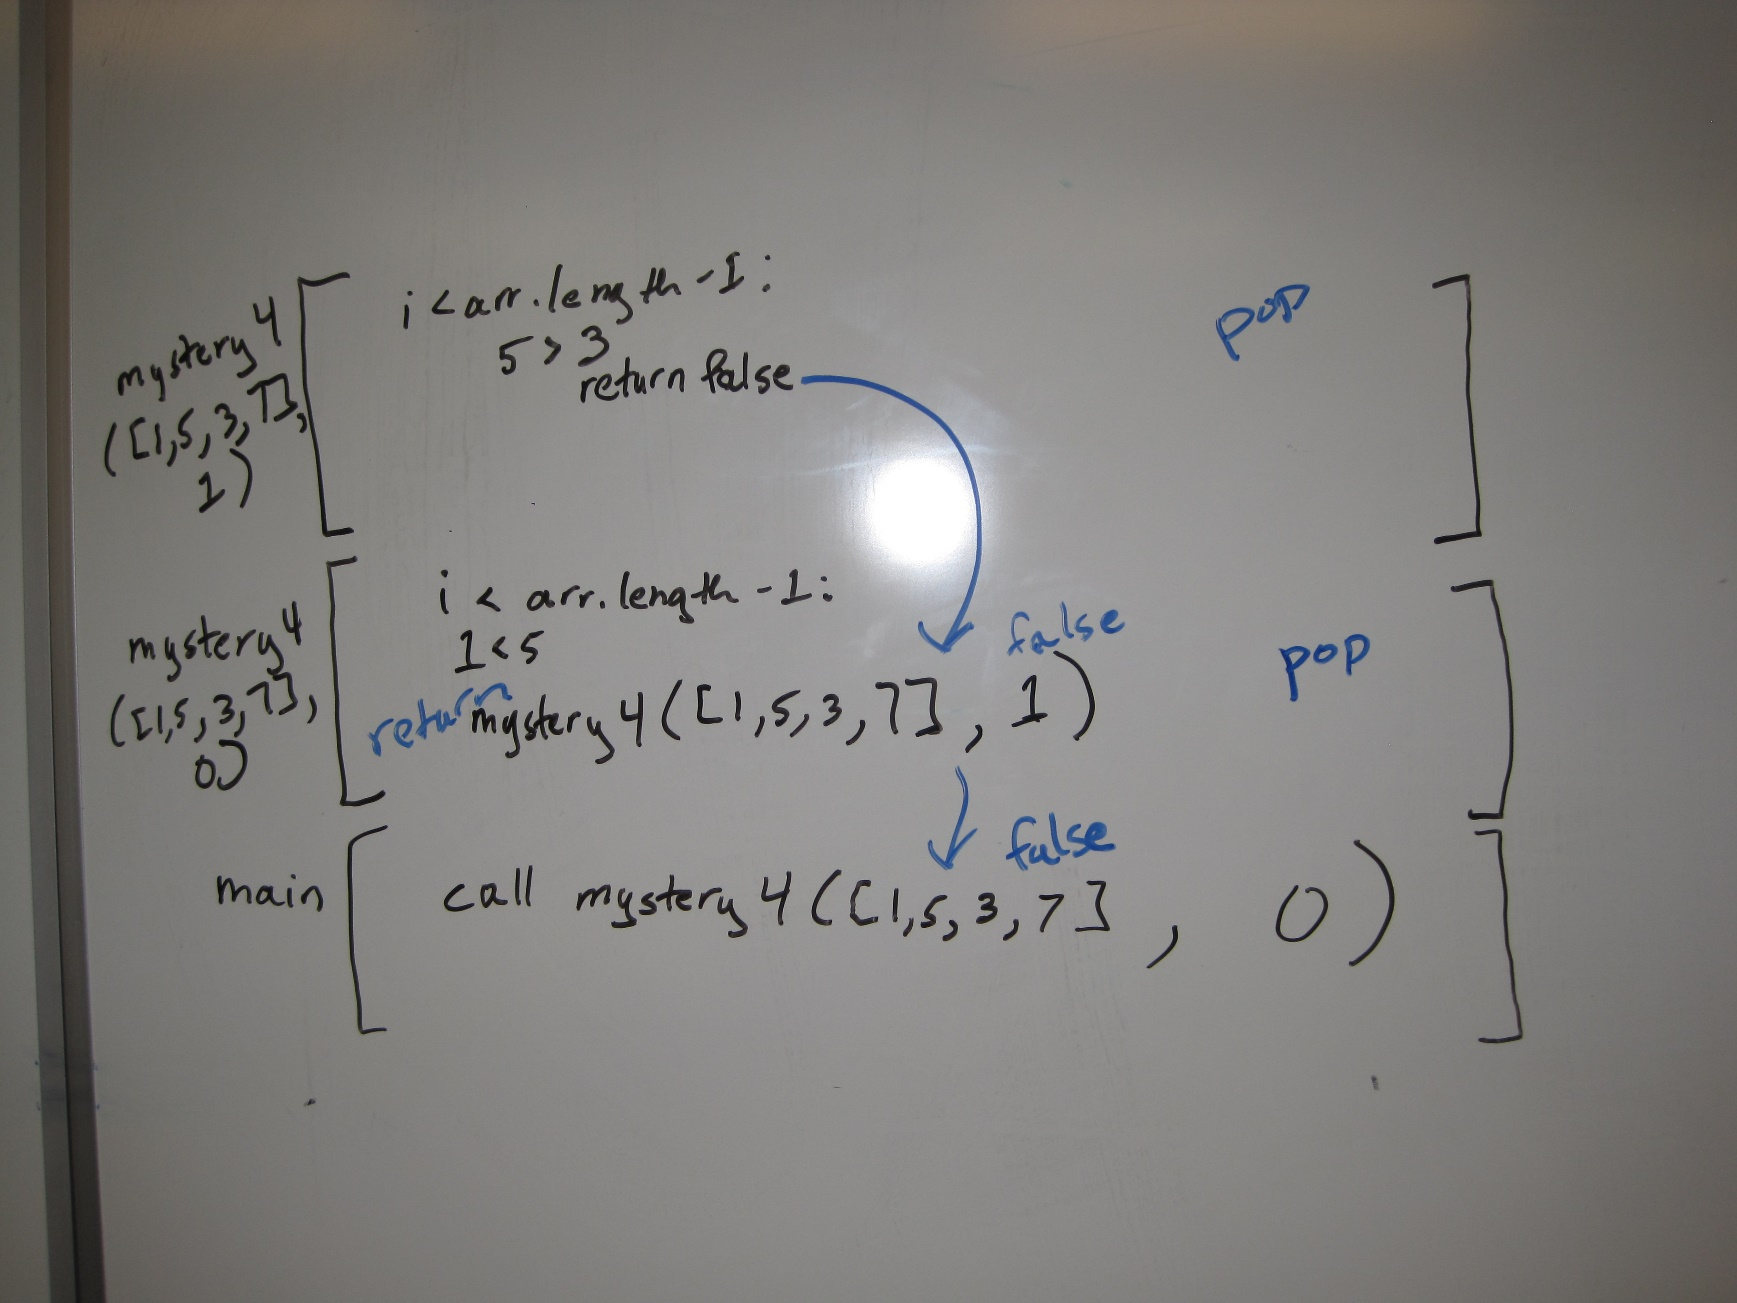 mystery4
([1,5,3,7],
1)
i < arr.length -1:
5 > 3
return false
pop
mystery4
([1,5,3,7],
0)
i < arr.length -1:
1 < 5
false
return mystery4([1,5,3,7], 1)
pop
main
false
call mystery4([1,5,3,7], 0)